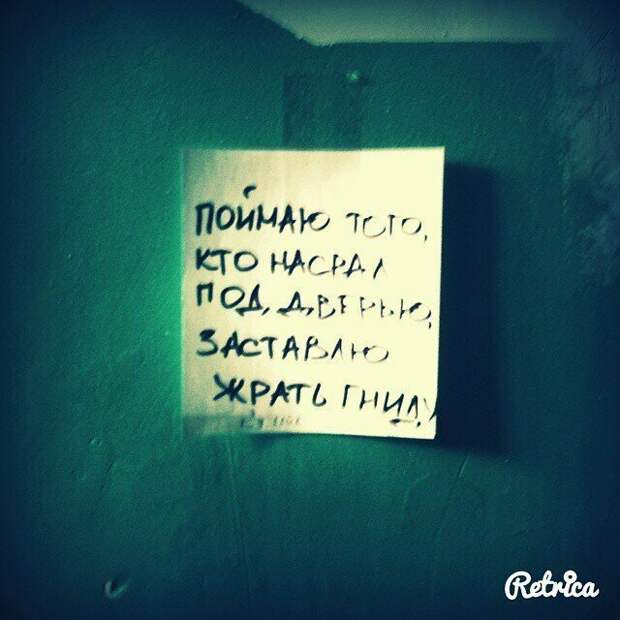 ПОЙМАЮ ТОГО,
КТО НАСРАЛ
ПОД ДВЕРЬЮ,
ЗАСТАВЛЮ
ЖРАТЬ ГНИДУ
Retrica